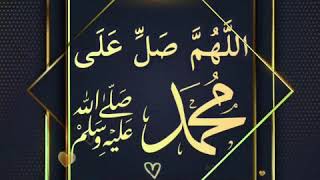 اللَّهُمَّ صَلِّ عَلَى
مُحَمَّد صَلَّى اللهُ عَلَيْهِ وَسَلَّمْ